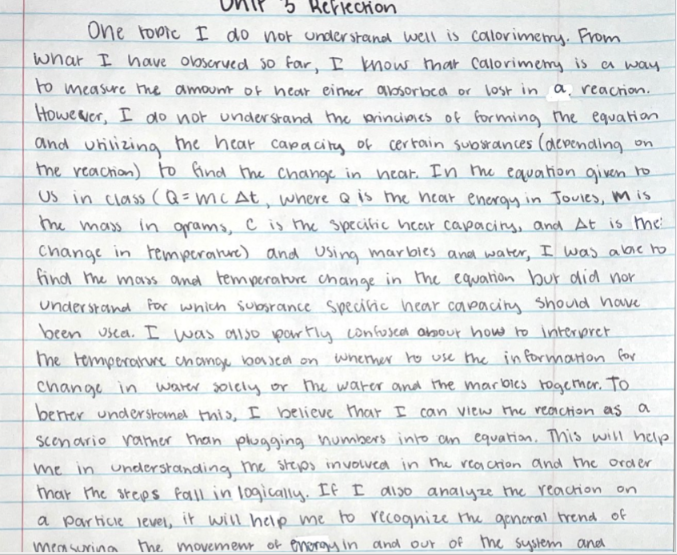 Unit 5 Reflection
One topic I do not understand well is calorimetry. From
what I have observed so far, I know that calorimetry is a way
to measure the amount of heat either absorbed or lost in a reaction.
However, I do not understand the principles of forming the equation
and utilizing the heat capacity of certain substances (depending on
the reaction) to find the change in heat. In the equation given to
us in class (Q = mc Δt, where Q is the heat energy in Joules, m is
the mass in grams, C is the specific heat capacity, and Δt is the
change in temperature) and using marbles and water, I was able to
find the mass and temperature change in the equation but did not
understand for which substance specific heat capacity should have
been used. I was also partly confused about how to interpret
the temperature change based on whether to use the information for
change in water solely or the water and the marbles together. To
better understand this, I believe that I can view the reaction as a
scenario rather than plugging numbers into an equation. This will help
me in understanding the steps involved in the reaction and the order
that the steps fall in logically. If I also analyze the reaction on
a particle level, it will help me to recognize the general trend of
measuring the movement of energy in and out of the system and